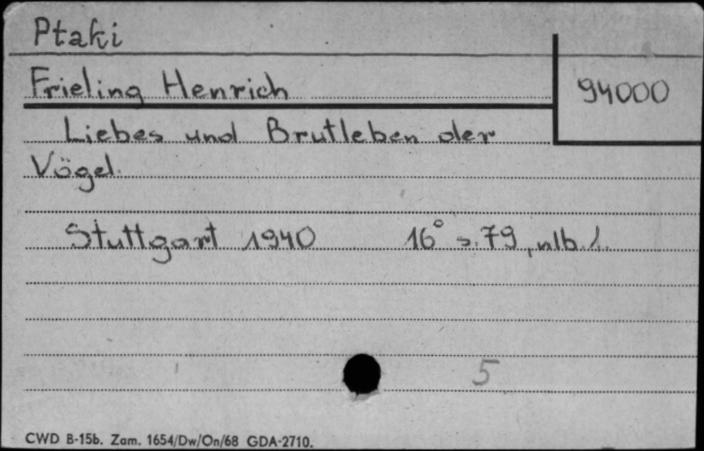 Ptaki
Frieling Henrich
94000
Liebes und Brutleben der
Vögel.
Stuttgart 1940 16° s. 79, nlb. 1.
5
CWD B-15b. Zam. 1654/Dw/On/68 GDA-2710.